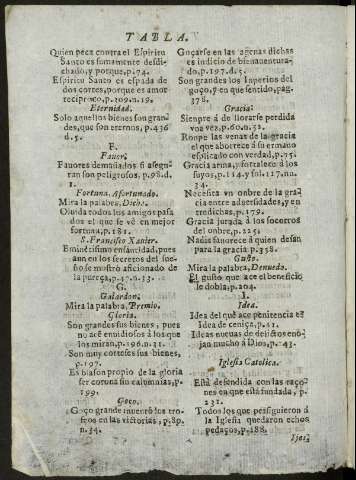 TABLA.
Quien peca contra el Espiritu
Santo es sumamente desdi-
chado, y porque, p.74.
Espiritu Santo es espada de
dos cortes, porque es amor
reciproco, p.209.n.19.
Eternidad.
Solo aquellos bienes son gran-
des, que son eternos, p.436
d.5.
F.
Favor.
Favores demasiados si asegu-
ran son peligrosos, p.98.d.
1.
Fortuna. Afortunado.
Mira la palabra, Dicha.
Olvida todos los amigos pasa
dos el que se vè en mejor
fortuna, p.181.
S. Francisco Xavier.
Eminētissimo en santidad, pues
aun en los secretos del sue-
ño se mostrò aficionado de
la pureça, p.47.n.13.
G.
Galardon.
Mira la palabra, Premio.
Gloria.
Son grandes sus bienes, pues
no acē envidiosos à los que
los miran, p.196.n.31.
Son muy corteses sus bienes,
p.197.
Es blason propio de la gloria
ser corona sin calumnias, p.
199.
Goço.
Goço grande muestrò los tro-
feos en las victorias, p.89.
n.34.
Goçarse en las agenas dichas
es indicio de bienaventura-
do, p.197.d.5.
Son grandes los Inperios del
goço, y en que sentido, pag.
378.
Gracia.
Sienpre à de llorarse perdida
vna vez, p.60.n.52.
Ronpe las venas de la gracia
el que aborrece à su ermano
esplicado con verdad, p.75.
Gracia arma, y fortalece à los
suyos, p.114. y fol.117.nu.
34.
Necesita vn onbre de la gra-
cia entre adversidades, y en
tre dichas, p.179.
Gracia jurada à los socorros
del onbre, p.225.
Nadie sanmerece à quien desan
para la gracia p.358.
Gusto.
Mira la palabra, Denuedo.
El gusto que ace el beneficio
le dobla, p.204.
I.
Idea.
Idea del que ace penitencia es
Idea de ceniça, p.21.
Ideas nuevas de delictos eno-
jan mucho à Dios, p.43.
Iglesia Catolica.
Està defendida con las raço-
nes en que està fundada, p.
231.
Todos los que persiguieron à
la Iglesia quedaron echos
pedaços, p.188.